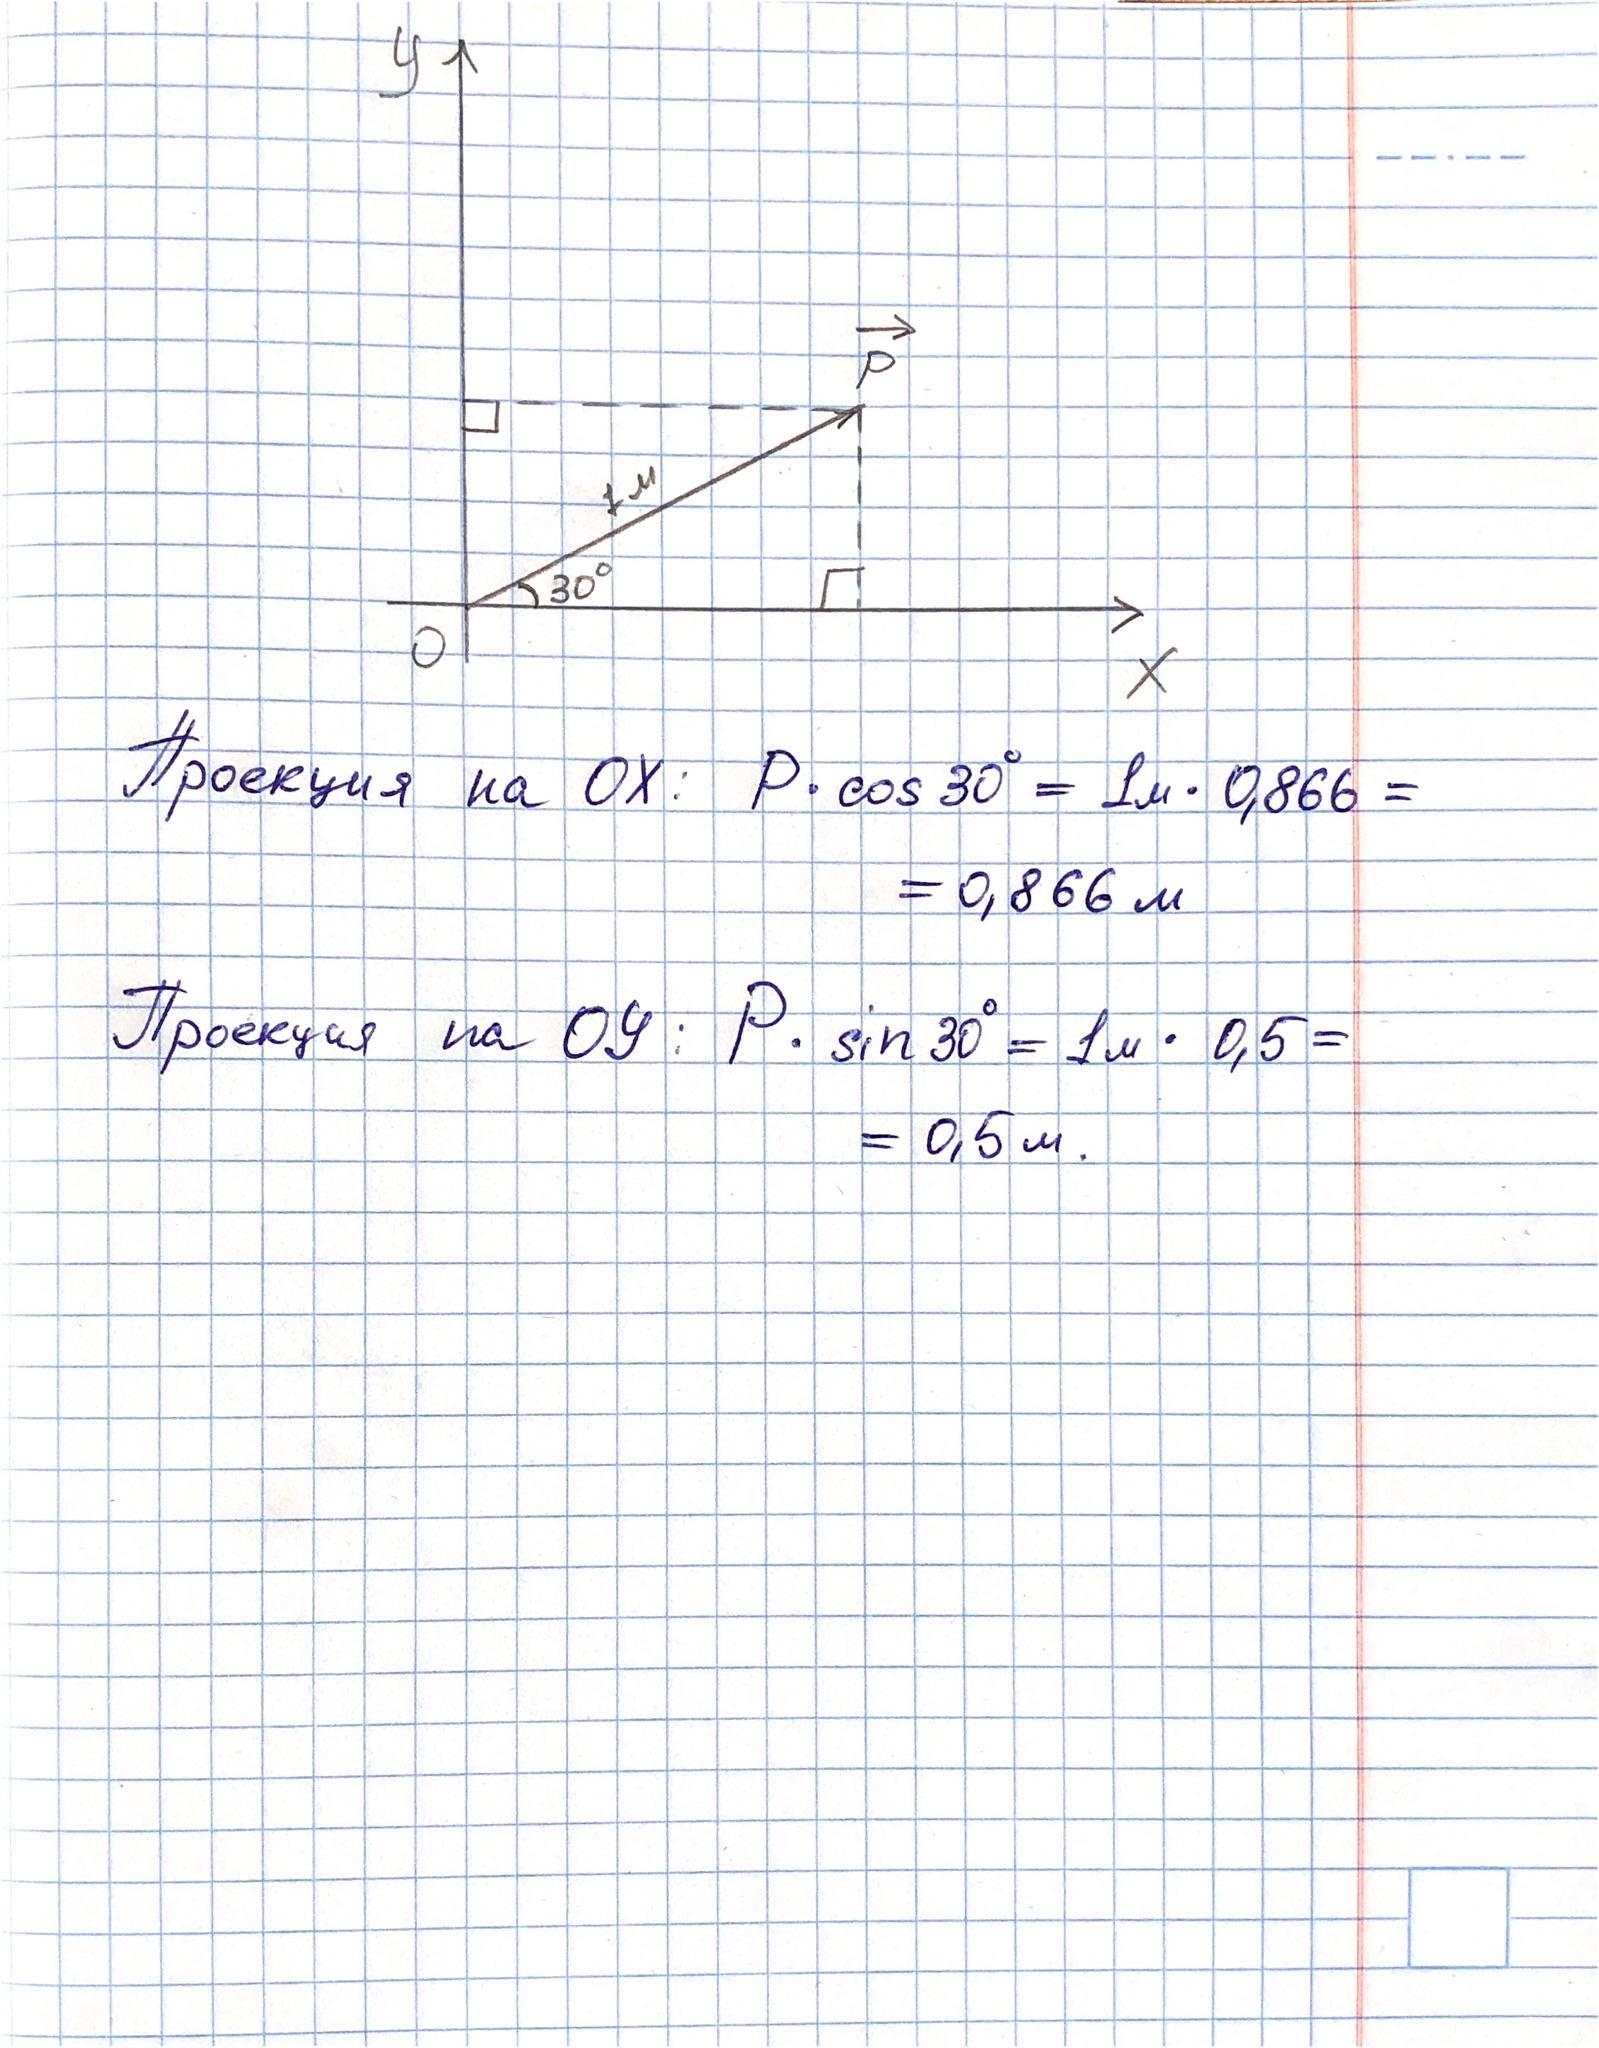 У
P
1 м
30°
O
X
Проекция на OX: P · cos 30° = 1м · 0,866 =
= 0,866 м
Проекция на ОУ: P · sin 30° = 1м · 0,5 =
= 0,5 м.